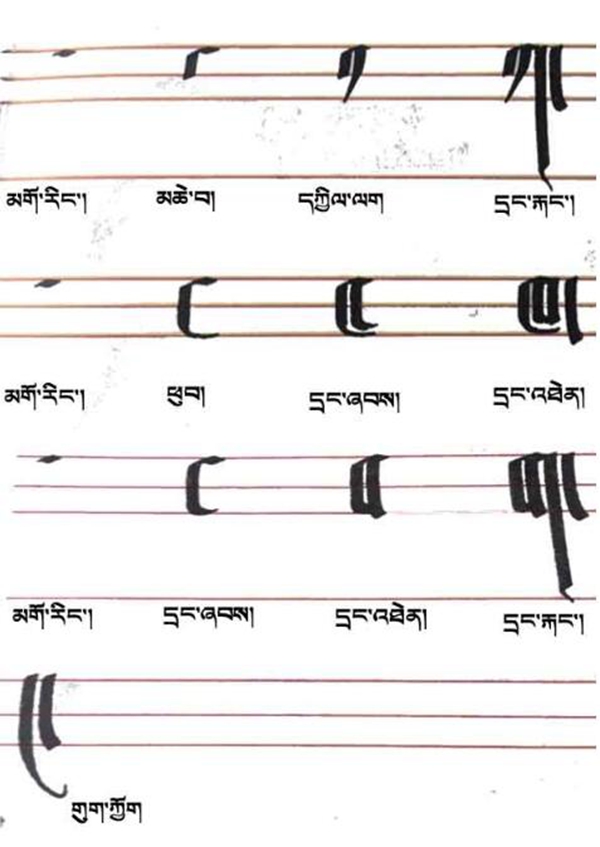 མགོ་རིང་། མཆེ་བ། དཀྱིལ་ལག དྲང་རྐང་།
མགོ་རིང་། ཕུབ། དྲང་ཞབས། དྲང་འཐེན།
མགོ་རིང་། དྲང་ཞབས། དྲང་འཐེན། དྲང་རྐང་།
གུག་ཀྱོག